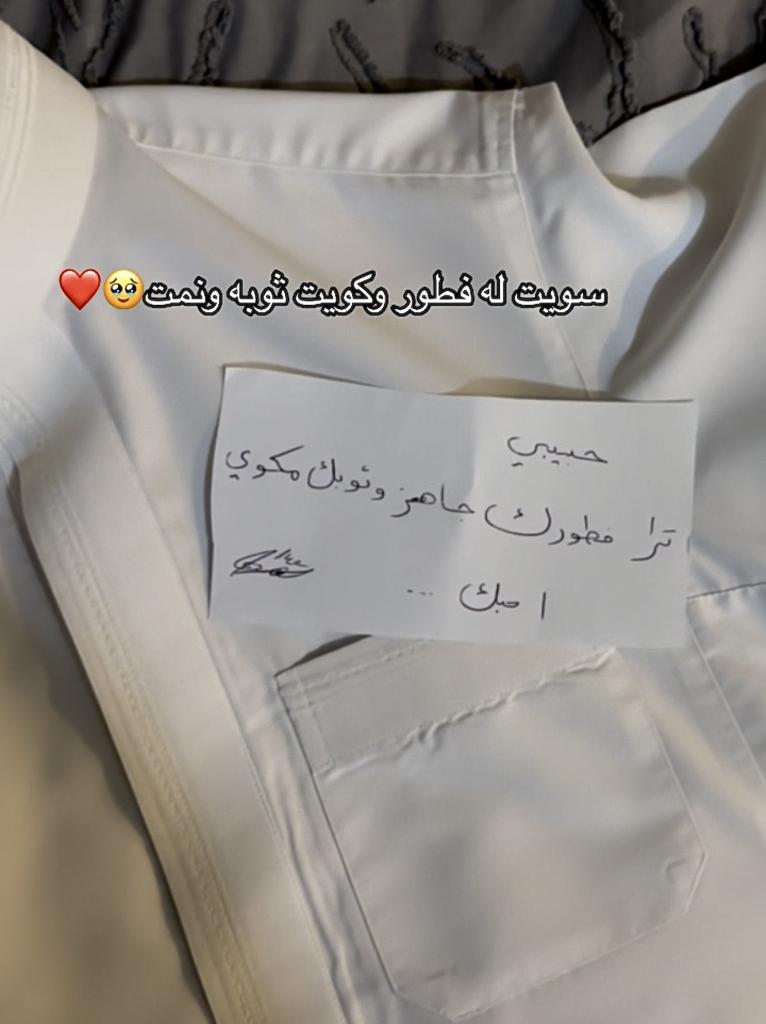 سويت له فطور وكويت ثوبه ونمت🥹❤️
حبيبي
ترا فطورك جاهز وثوبك مكوي
احبك ...